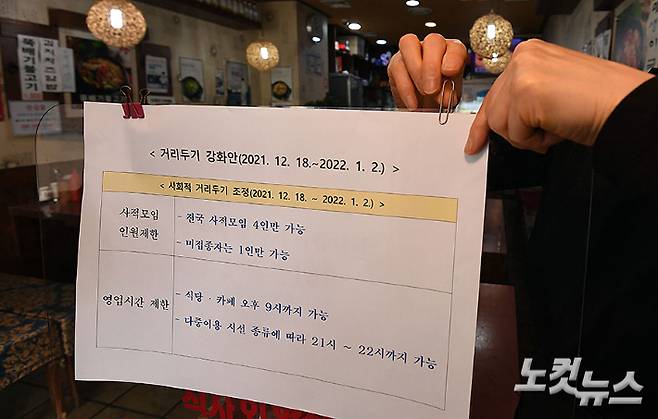 뚝배기불고기
< 거리두기 강화안(2021. 12. 18.~2022. 1. 2.) >
< 사회적 거리두기 조정(2021. 12. 18. ~ 2022. 1. 2.) >
사적모임
인원제한
- 전국 사적모임 4인만 가능
- 미접종자는 1인만 가능
영업시간 제한
- 식당 · 카페 오후 9시까지 가능
- 다중이용 시설 종류에 따라 21시 ~ 22시까지 가능
노컷뉴스